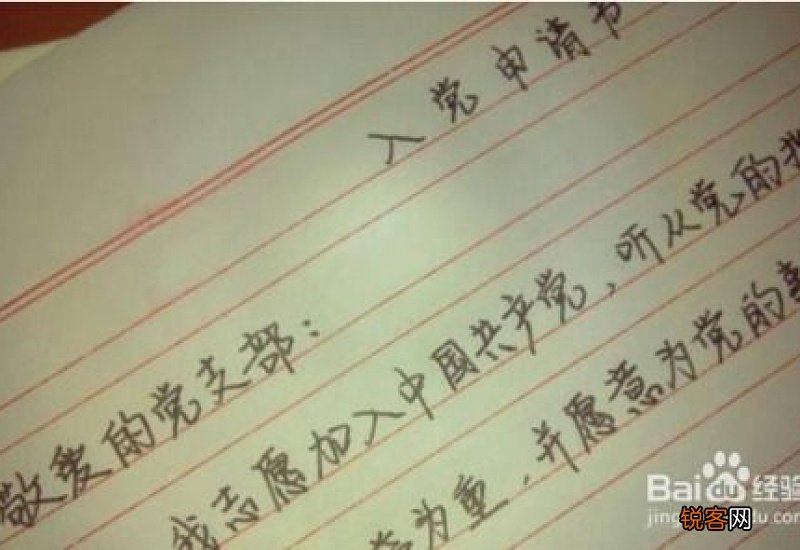 入党申请书
敬爱的党支部：
我志愿加入中国共产党，听从党的
为重，并愿意为党的
Bai du 经验
jing du.com
锐客网